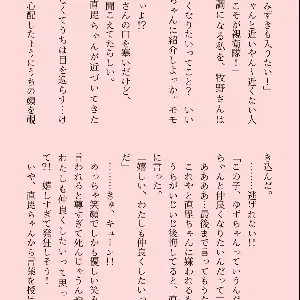 みすぎも入りたい！」
ゃんと近いやん～近くない人
こそが親衛隊！」
調になる私を、牧野さんは
くなりたいってこと？　いい
ちゃんに紹介しよっか。モモ
いよ!?
さんの口を塞いだけど、
聞こえてたらしい、
直毘ちゃんが近づいてきた
うちは目を逸らす……け
心配したようにうちの顔を覗
き込んだ。
………逃げれない!!
「この子、ゆずちゃんっていうんだ
ちゃんと仲良くなりたいんだって」
ああああ…最後まで言ってもうた
これやと直毘ちゃんに嫌われる
うちがいじいじ後悔してると、直
に言った。
「嬉しい、わたしも仲良くしたいっ
だ」
………きゅ、キューン!!
めっちゃ笑顔でしかも優しい笑
言われると尊すぎて死んじゃうんや
わたしも仲良くしたいって思っ
て?!　嬉しすぎて発狂しそう！
いや、直毘ちゃんから言葉を授